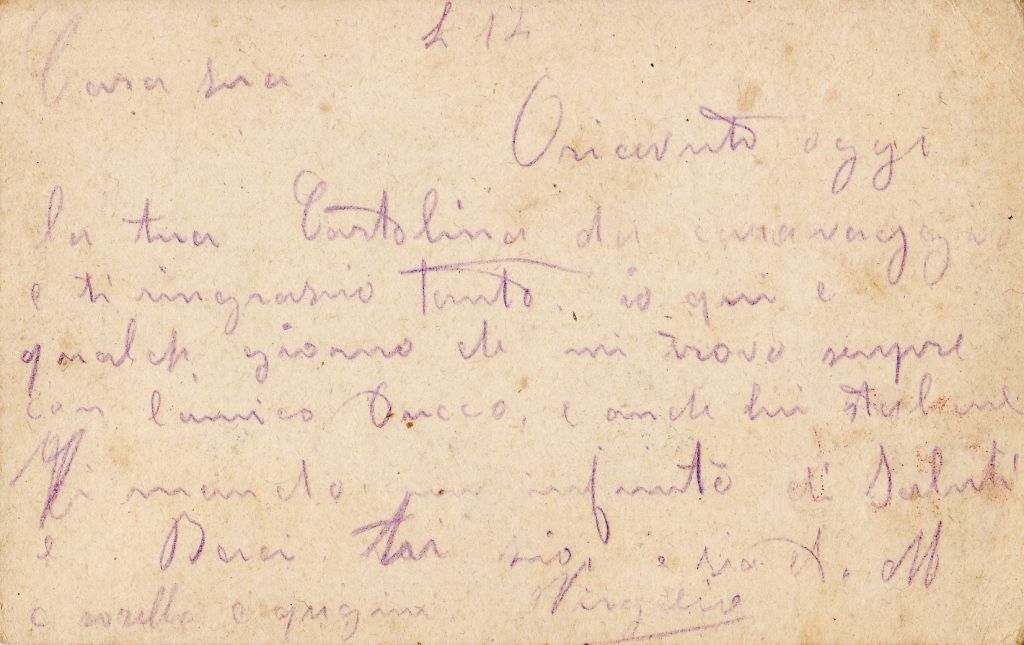 L 12
Cara sia
O ricevuto oggi
la tua Cartolina da caravaggio
e ti ringrasio tanto. io qui e
qualche giorno che mi trovo sempre
con l'amico Ducco, e anche lui sta bene
Vi mando un infinitò di Saluti
e Baci sio, e sia A. M
e sorella e qugini. Virgilio